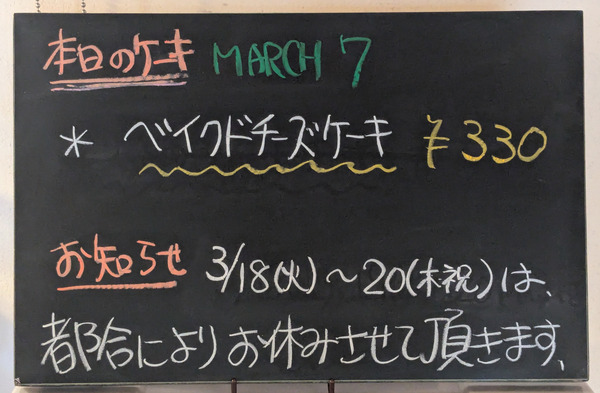 本日のケーキ MARCH 7
* ベイクドチーズケーキ ¥330
お知らせ 3/18(火)～20(木祝)は、
都合によりお休みさせて頂きます、